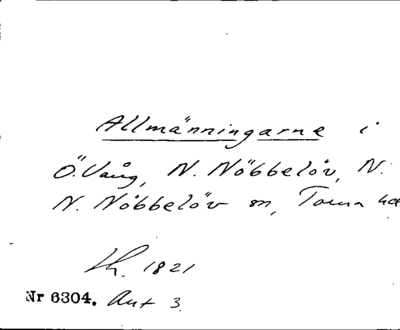 Allmänningarne i
Ö. Vång, N. Nöbbelöv, N.
N. Nöbbelöv sn, Torna hd
Lh. 1821
Nr 6304. Ant 3.